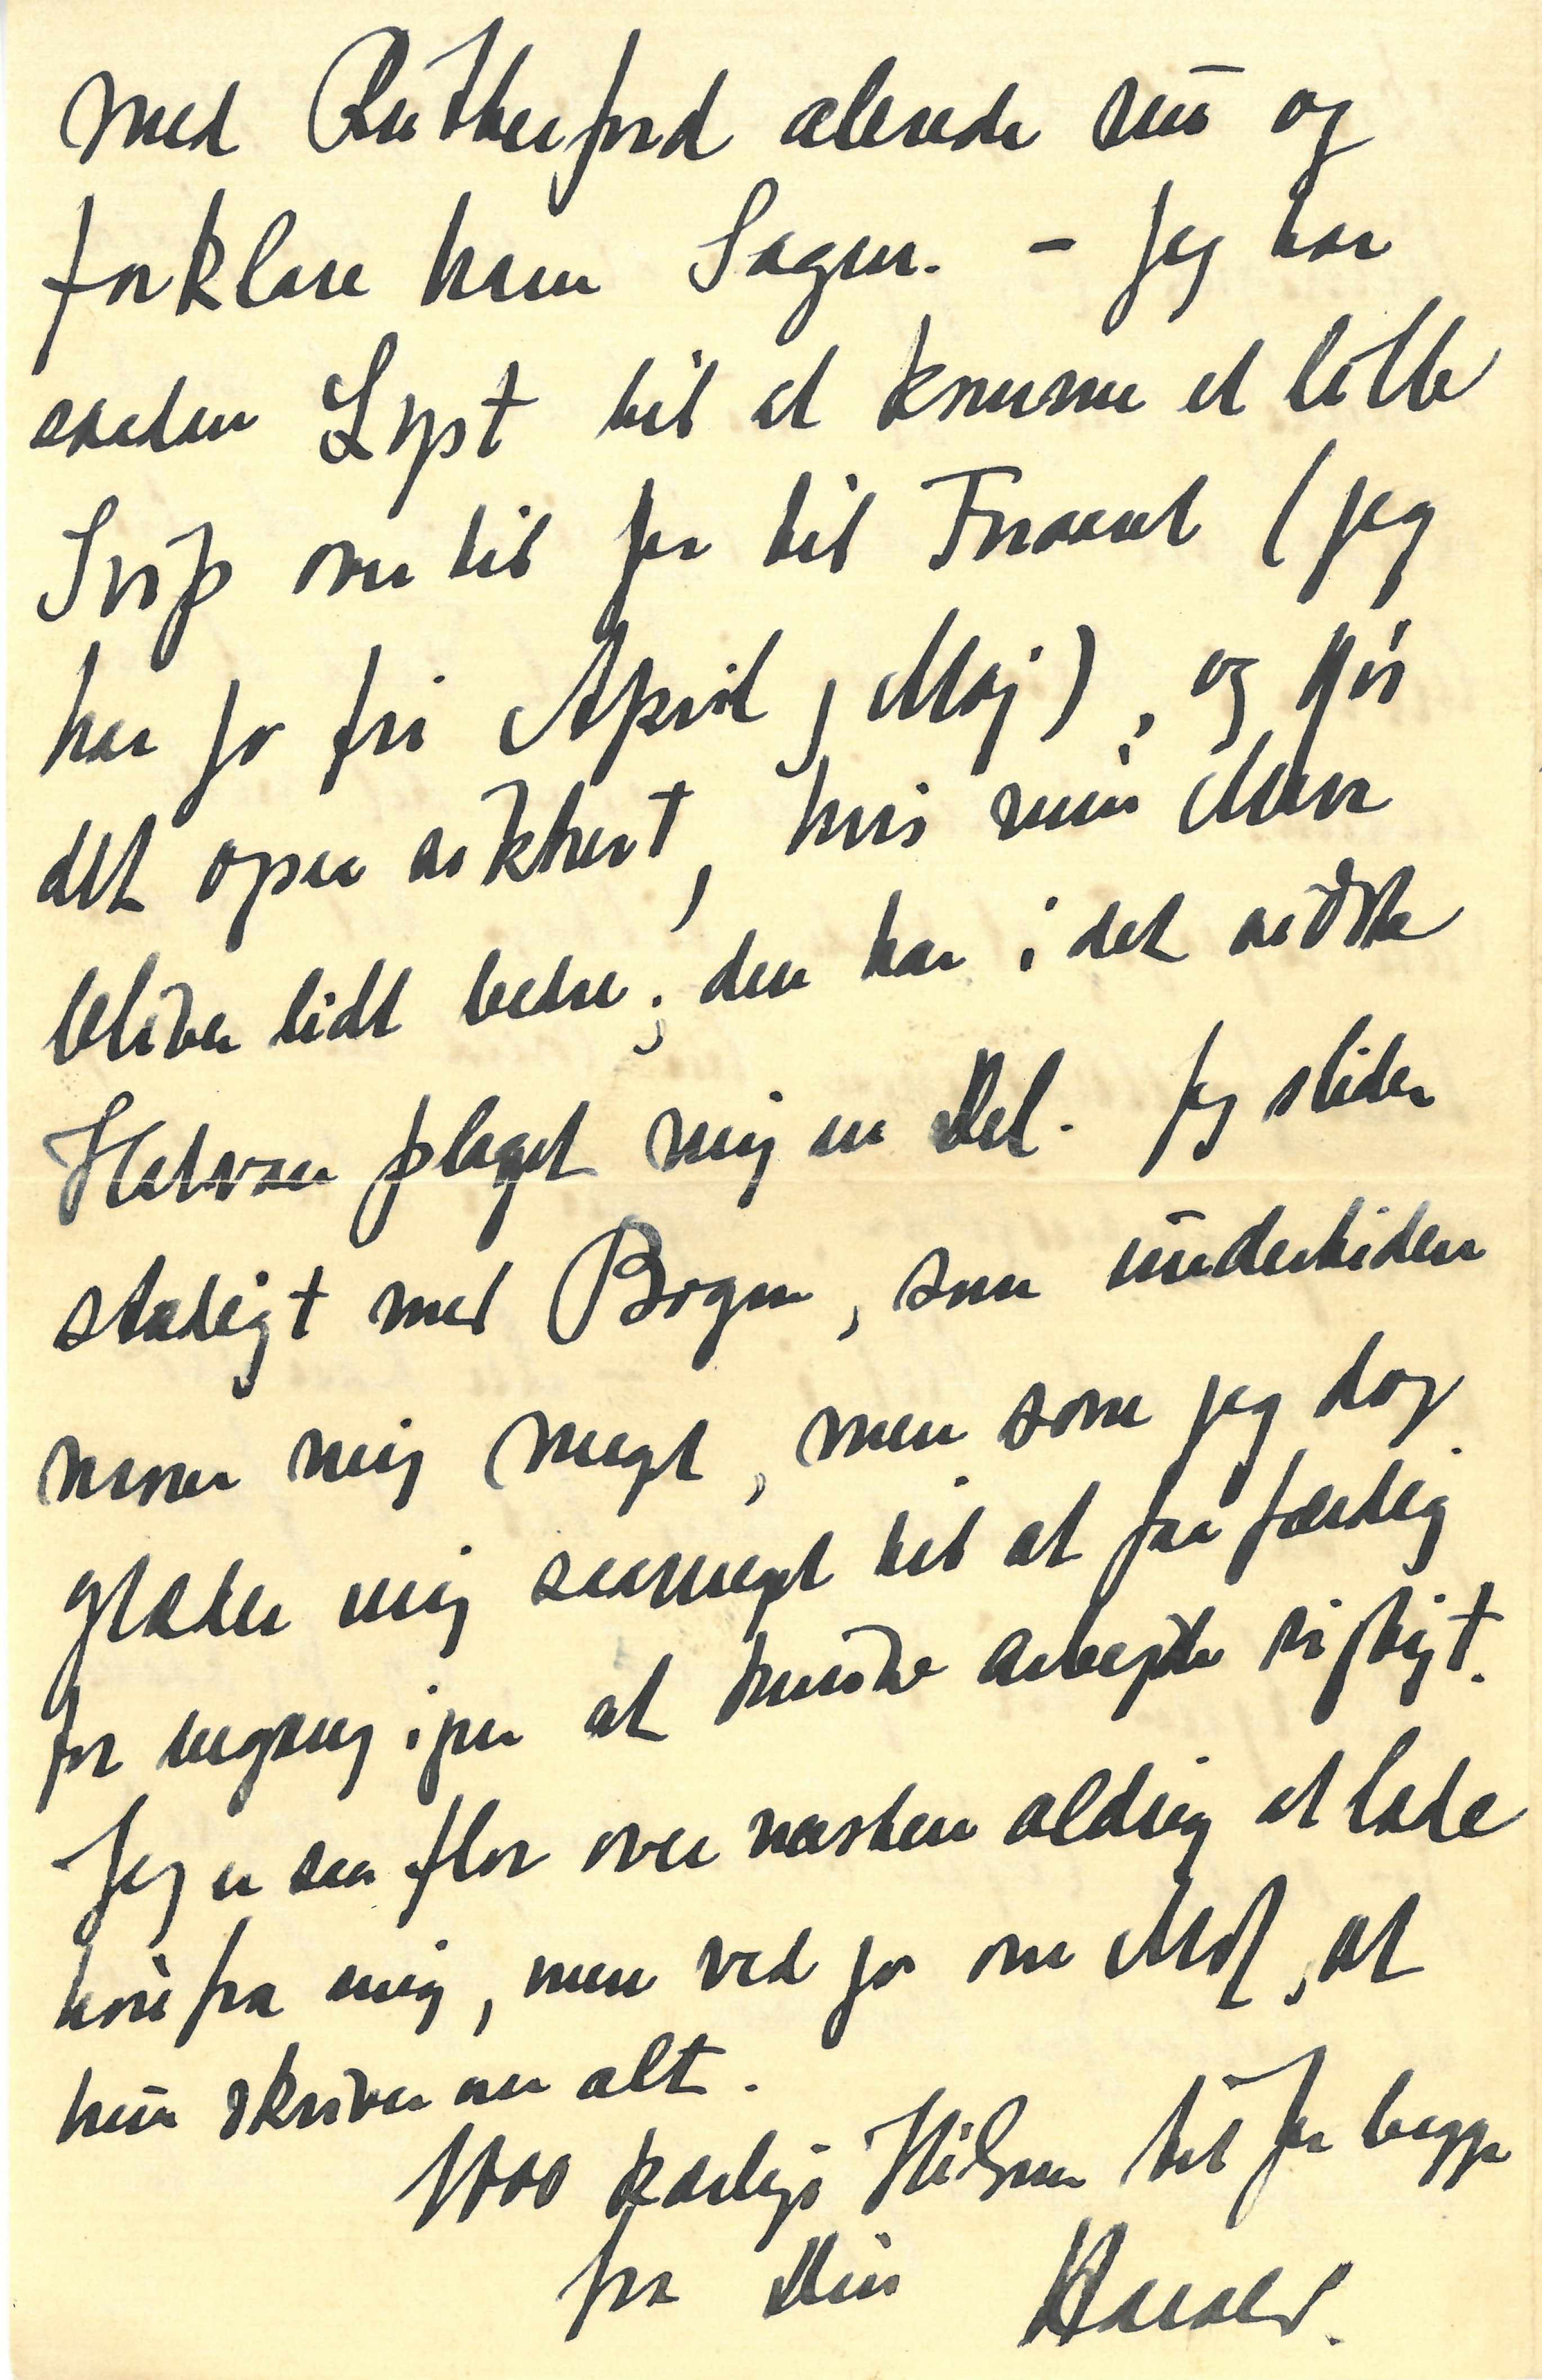 med Rutherford allerede nu og
forklare ham Sagen. – Jeg har
saadan Lyst til at komme et lille
Svip over til Jer til Foraaret (jeg
har jo fri April, Maj), og gør
det ogsaa sikkert, hvis min Mave
bliver lidt bedre; den har i det sidste
Halvaar plaget mig en Del. Jeg slider
stadigt med Bogen, som undertiden
morer mig meget, men som jeg dog
glæder mig saameget til at faa færdig
for engang igen at kunde arbejde rigtigt.
Jeg er saa flov over næsten aldrig at lade
høre fra mig, men ved jo om Mor, at
hun skriver om alt.
1000 kærlige Hilsner til Jer begge
fra Din Harald.